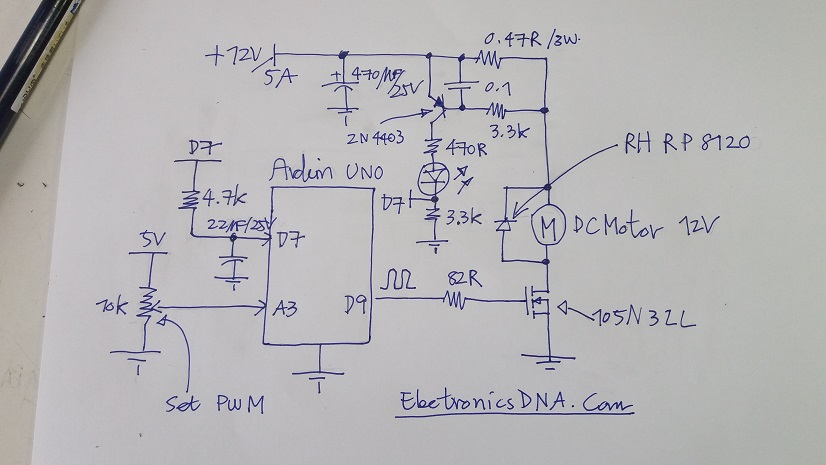 +12V
5A
+
470µF/25V
0.47R /3W.
0.1
3.3k
2N4403
470R
RH RP 8120
D7
4.7k
Arduin UNO
22µF/25V
D7
D7
3.3k
M
DC Motor 12V
5V
10k
A3
D9
82R
105N32L
Set PWM
ElectronicsDNA.Com